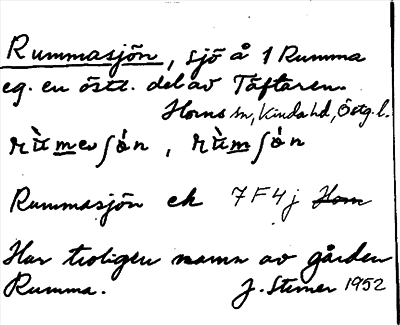 Rummasjön, sjö å 1 Rumma
eg. en östl. del av Täftaren.
Horns sn, Kinda hd, Östg. l.
rùmeʃón, rùmʃón
Rummasjön ek 7F4j Horn
Har troligen namn av gården
Rumma. J. Stener 1952